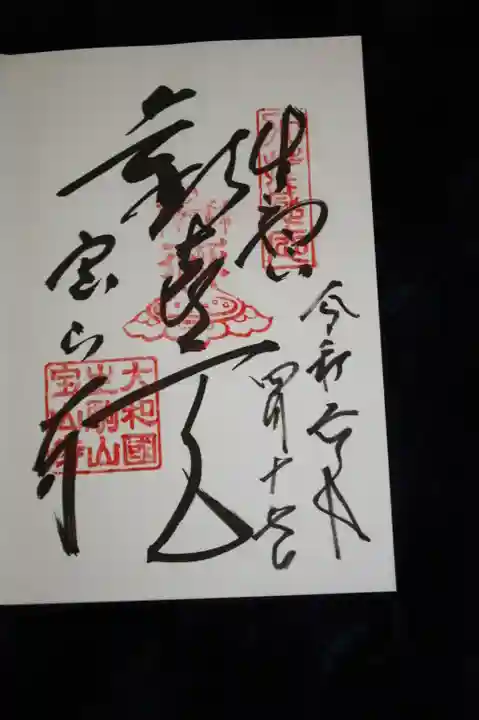 生駒山
歡喜天
宝山寺
令和
四月十七日
大和國
生駒山
宝山寺